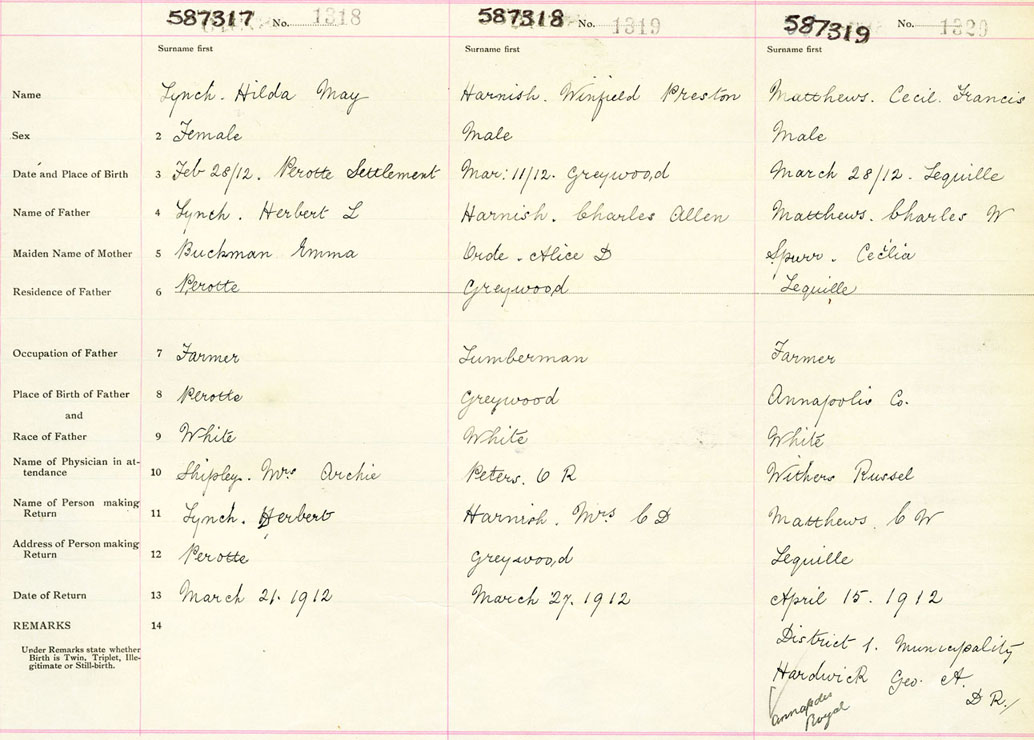 587317 No. 1318 587318 No. 1319 587319 No. 1320
Surname first Surname first Surname first
Name Lynch. Hilda May Harnish. Winfield Preston Matthews. Cecil. Francis
Sex 2 Female Male Male
Date and Place of Birth 3 Feb 28/12. Perotte Settlement Mar: 11/12. Greywood March 28/12. Lequille
Name of Father 4 Lynch. Herbert L Harnish. Charles Allen Matthews. Charles W
Maiden Name of Mother 5 Buckman Emma Orde. Alice D Spurr. Cecilia
Residence of Father 6 Perotte Greywood Lequille
Occupation of Father 7 Farmer Lumberman Farmer
Place of Birth of Father 8 Perotte Greywood Annapolis Co.
and
Race of Father 9 White White White
Name of Physician in at-
tendance 10 Shipley. Mrs Archie Peters. O R Withers Russel
Name of Person making
Return 11 Lynch. Herbert Harnish. Mrs C D Matthews. C W
Address of Person making
Return 12 Perotte Greywood Lequille
Date of Return 13 March 21. 1912 March 27. 1912 April 15. 1912
REMARKS 14
Under Remarks state whether
Birth is Twin, Triplet, Ille-
gitimate or Still-birth.
District 1. Municipality
Hardwick Geo. A.
D R.
Annapolis
Royal